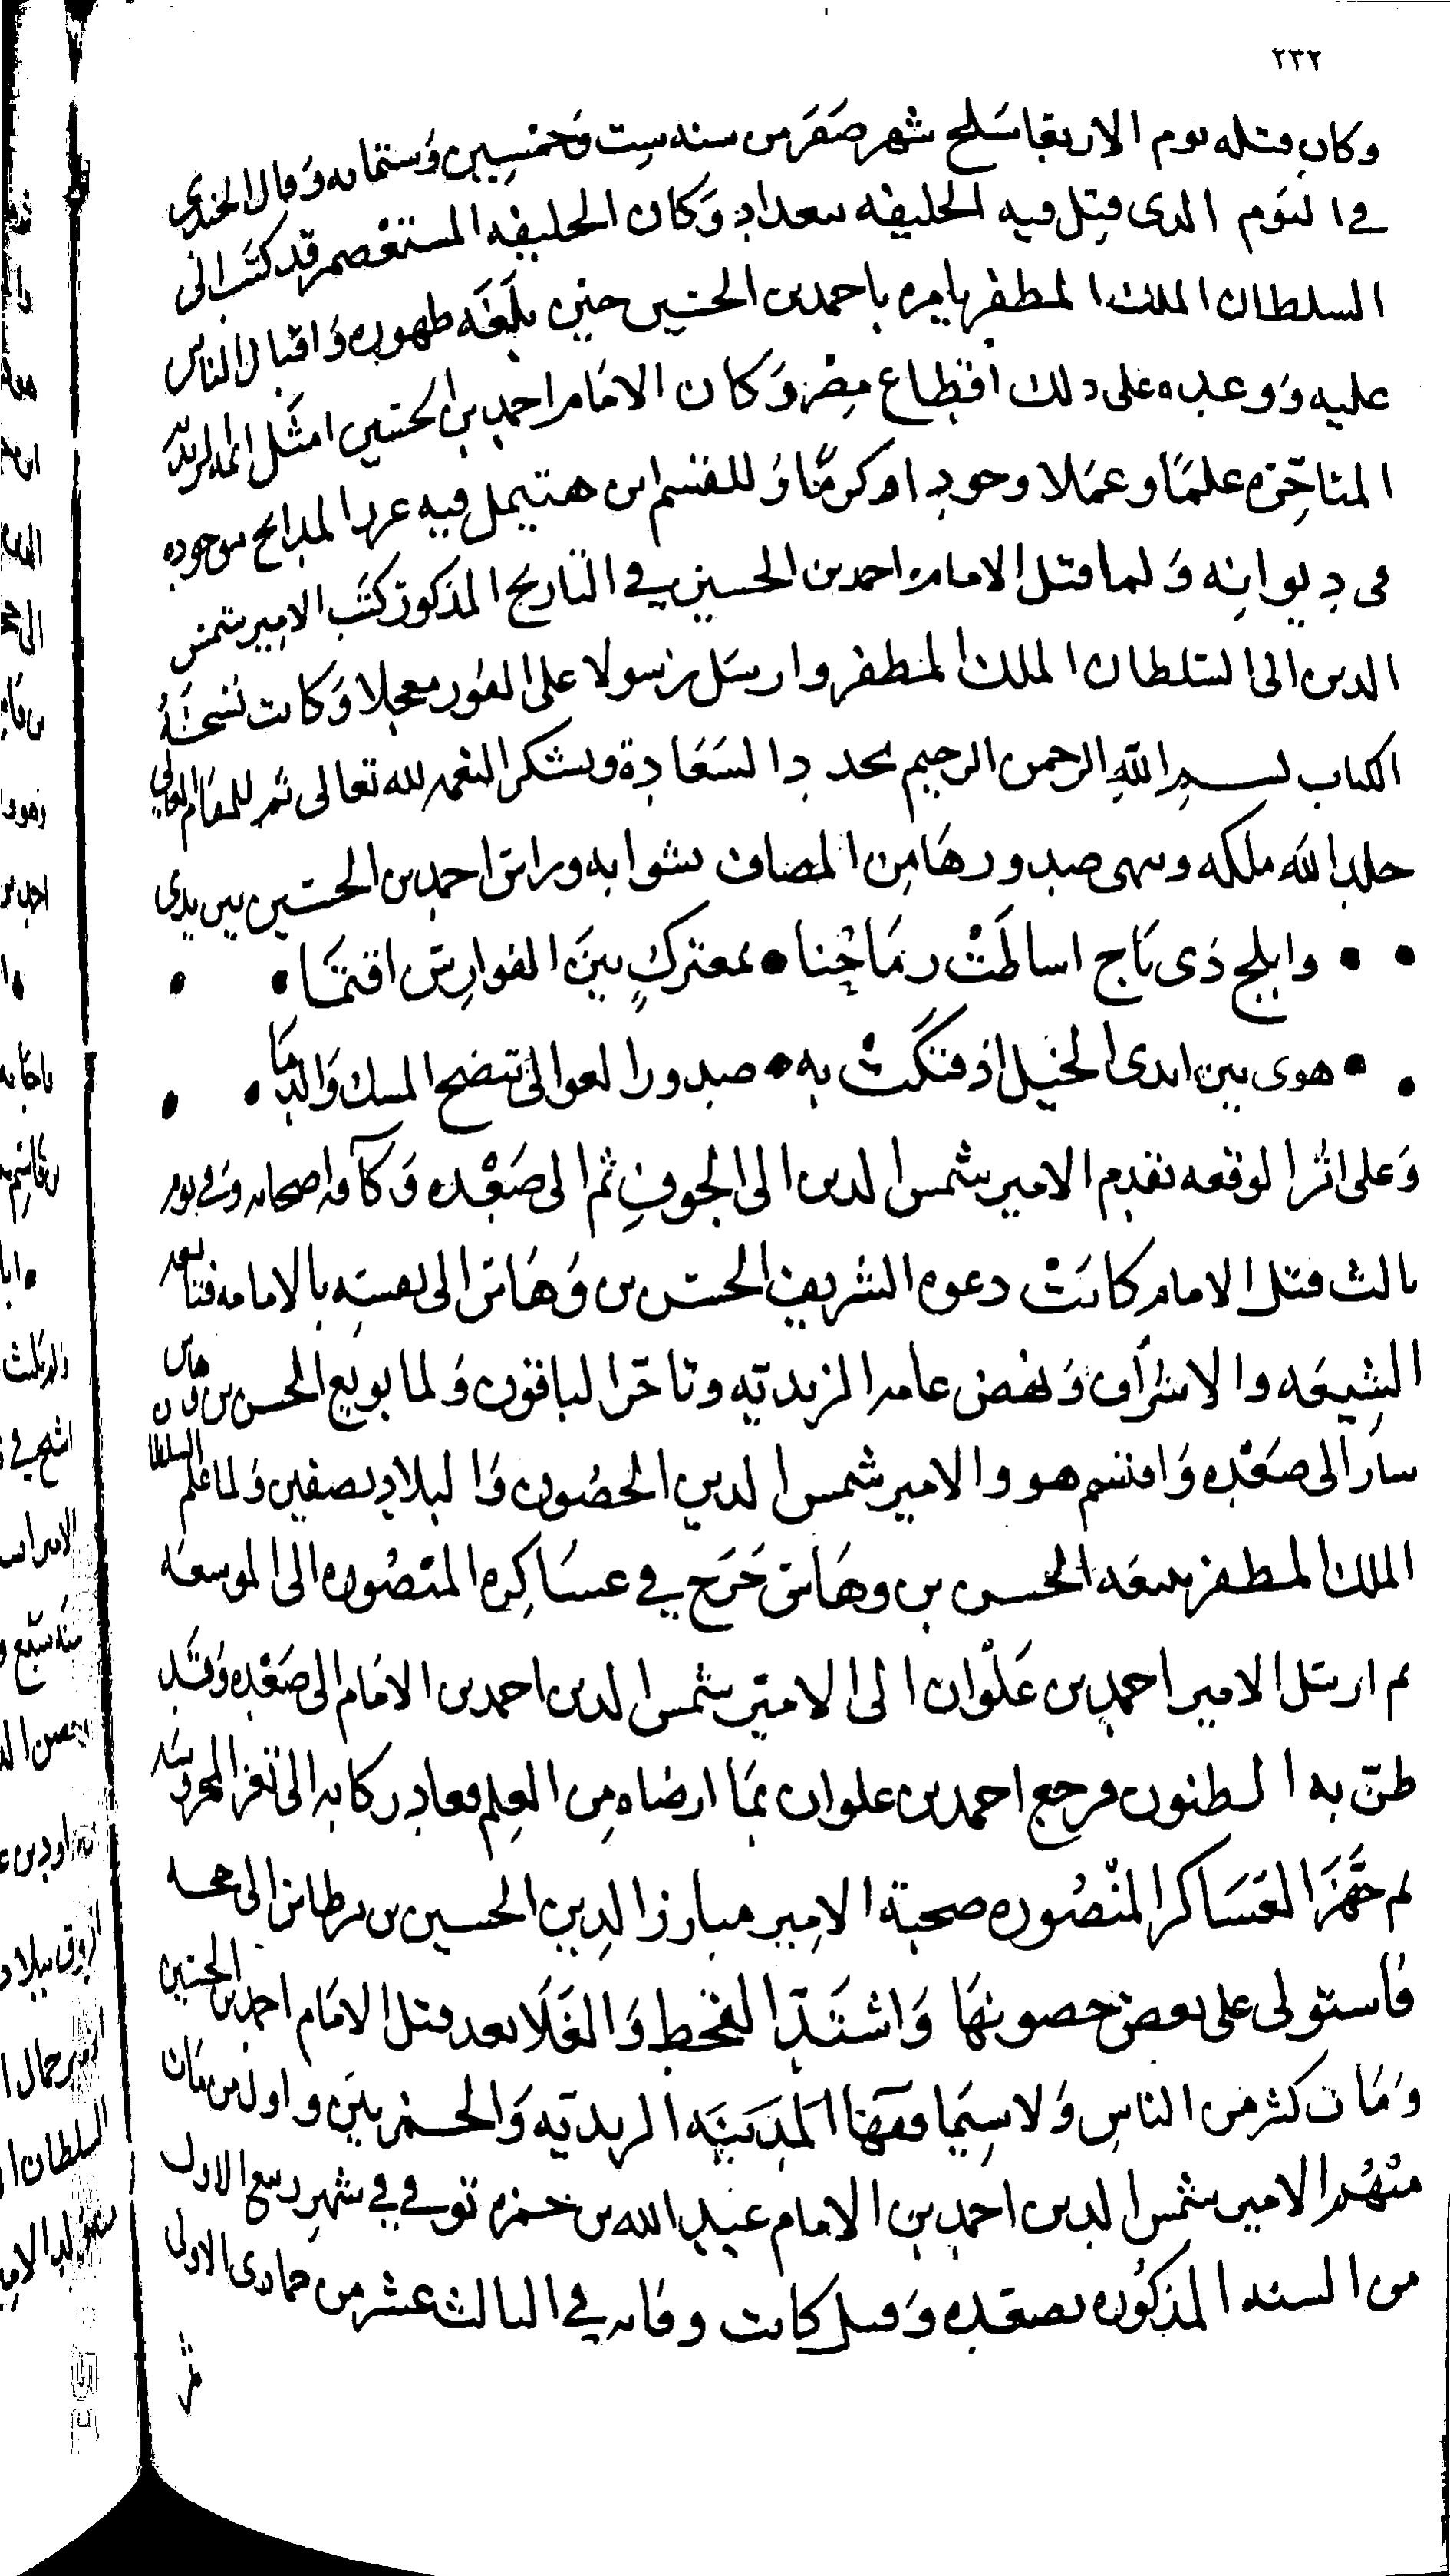 ٢٣٢
وكان قتله يوم الاربعا سلخ شهر صفر من سنه ست وخمسين وستمايه وقال الجندي
في اليوم الذى قتل فيه الخليفه ببغداد وكان الخليفه المستعصم قد كتب الى
السلطان الملك المظفر يامره باحمد بن الحسين حين بلغه ظهوره واقبال الناس
عليه ووعده على ذلك اقطاع مصر وكان الامام احمد بن الحسين امثل ائمه الزيديه
المتاخره علما وعملا وجودا وكرما وللقسم ابن هتيمل فيه غرر المدائح موجوده
فى ديوانه ولما قتل الامام احمد بن الحسين في التاريخ المذكور كتب الامير شمس
الدين الى السلطان الملك المظفر وارسل رسولا على الفور معجلا وكانت نسخة
الكتاب بسم الله الرحمن الرحيم يجدد السعادة ويشكر النعمه لله تعالى ثم للمقام العالي
خلد الله ملكه وينهى صدورها من المصاف بشوابه وراس احمد بن الحسين بين يدى
وابلج ذى تاج اساطت رماحنا بمعترك بين الفوارس اقتما
هوى بين ايدى الخيل اذ فتكت به صدور العوالى تنضح المسك والدما
وعلى اثر الوقعه تقدم الامير شمس الدين الى الجوف ثم الى صعده وكافه اصحابه وفي يوم
ثالث قتل الامام كانت دعوه الشريف الحسن بن وهاس الى نفسه بالامامه فتابعه
الشيعه والاشراف ونهض عامه الزيديه وتاخر الباقون ولما بويع الحسن بن وهاس
سار الى صعده واقتسم هو والامير شمس الدين الحصون والبلاد نصفين ولما علم السلطان
الملك المظفر ببيعه الحسن بن وهاس خرج في عساكره المنصوره الى الموسعه
ثم ارسل الامير احمد بن علوان الى الامير شمس الدين احمد بن الامام الى صعده وقد
ظن به الظنون فرجع احمد بن علوان بما ارضاه من العلم فعاد ركابه الى تعز المحروسه
ثم جهز العساكر المنصوره صحبة الامير مبارز الدين الحسين بن برطاس الى حجه
فاستولى على بعض حصونها واشتد القحط والغلا بعد قتل الامام احمد بن الحسين
ومات كثير من الناس ولا سيما فقها المدينه الزيديه والحمزيين واول من مات
منهم الامير شمس الدين احمد بن الامام عبد الله بن حمزه توفي في شهر ربيع الاول
من السنه المذكوره بصعده وقيل كانت وفاته في الثالث عشر من جمادى الاولى